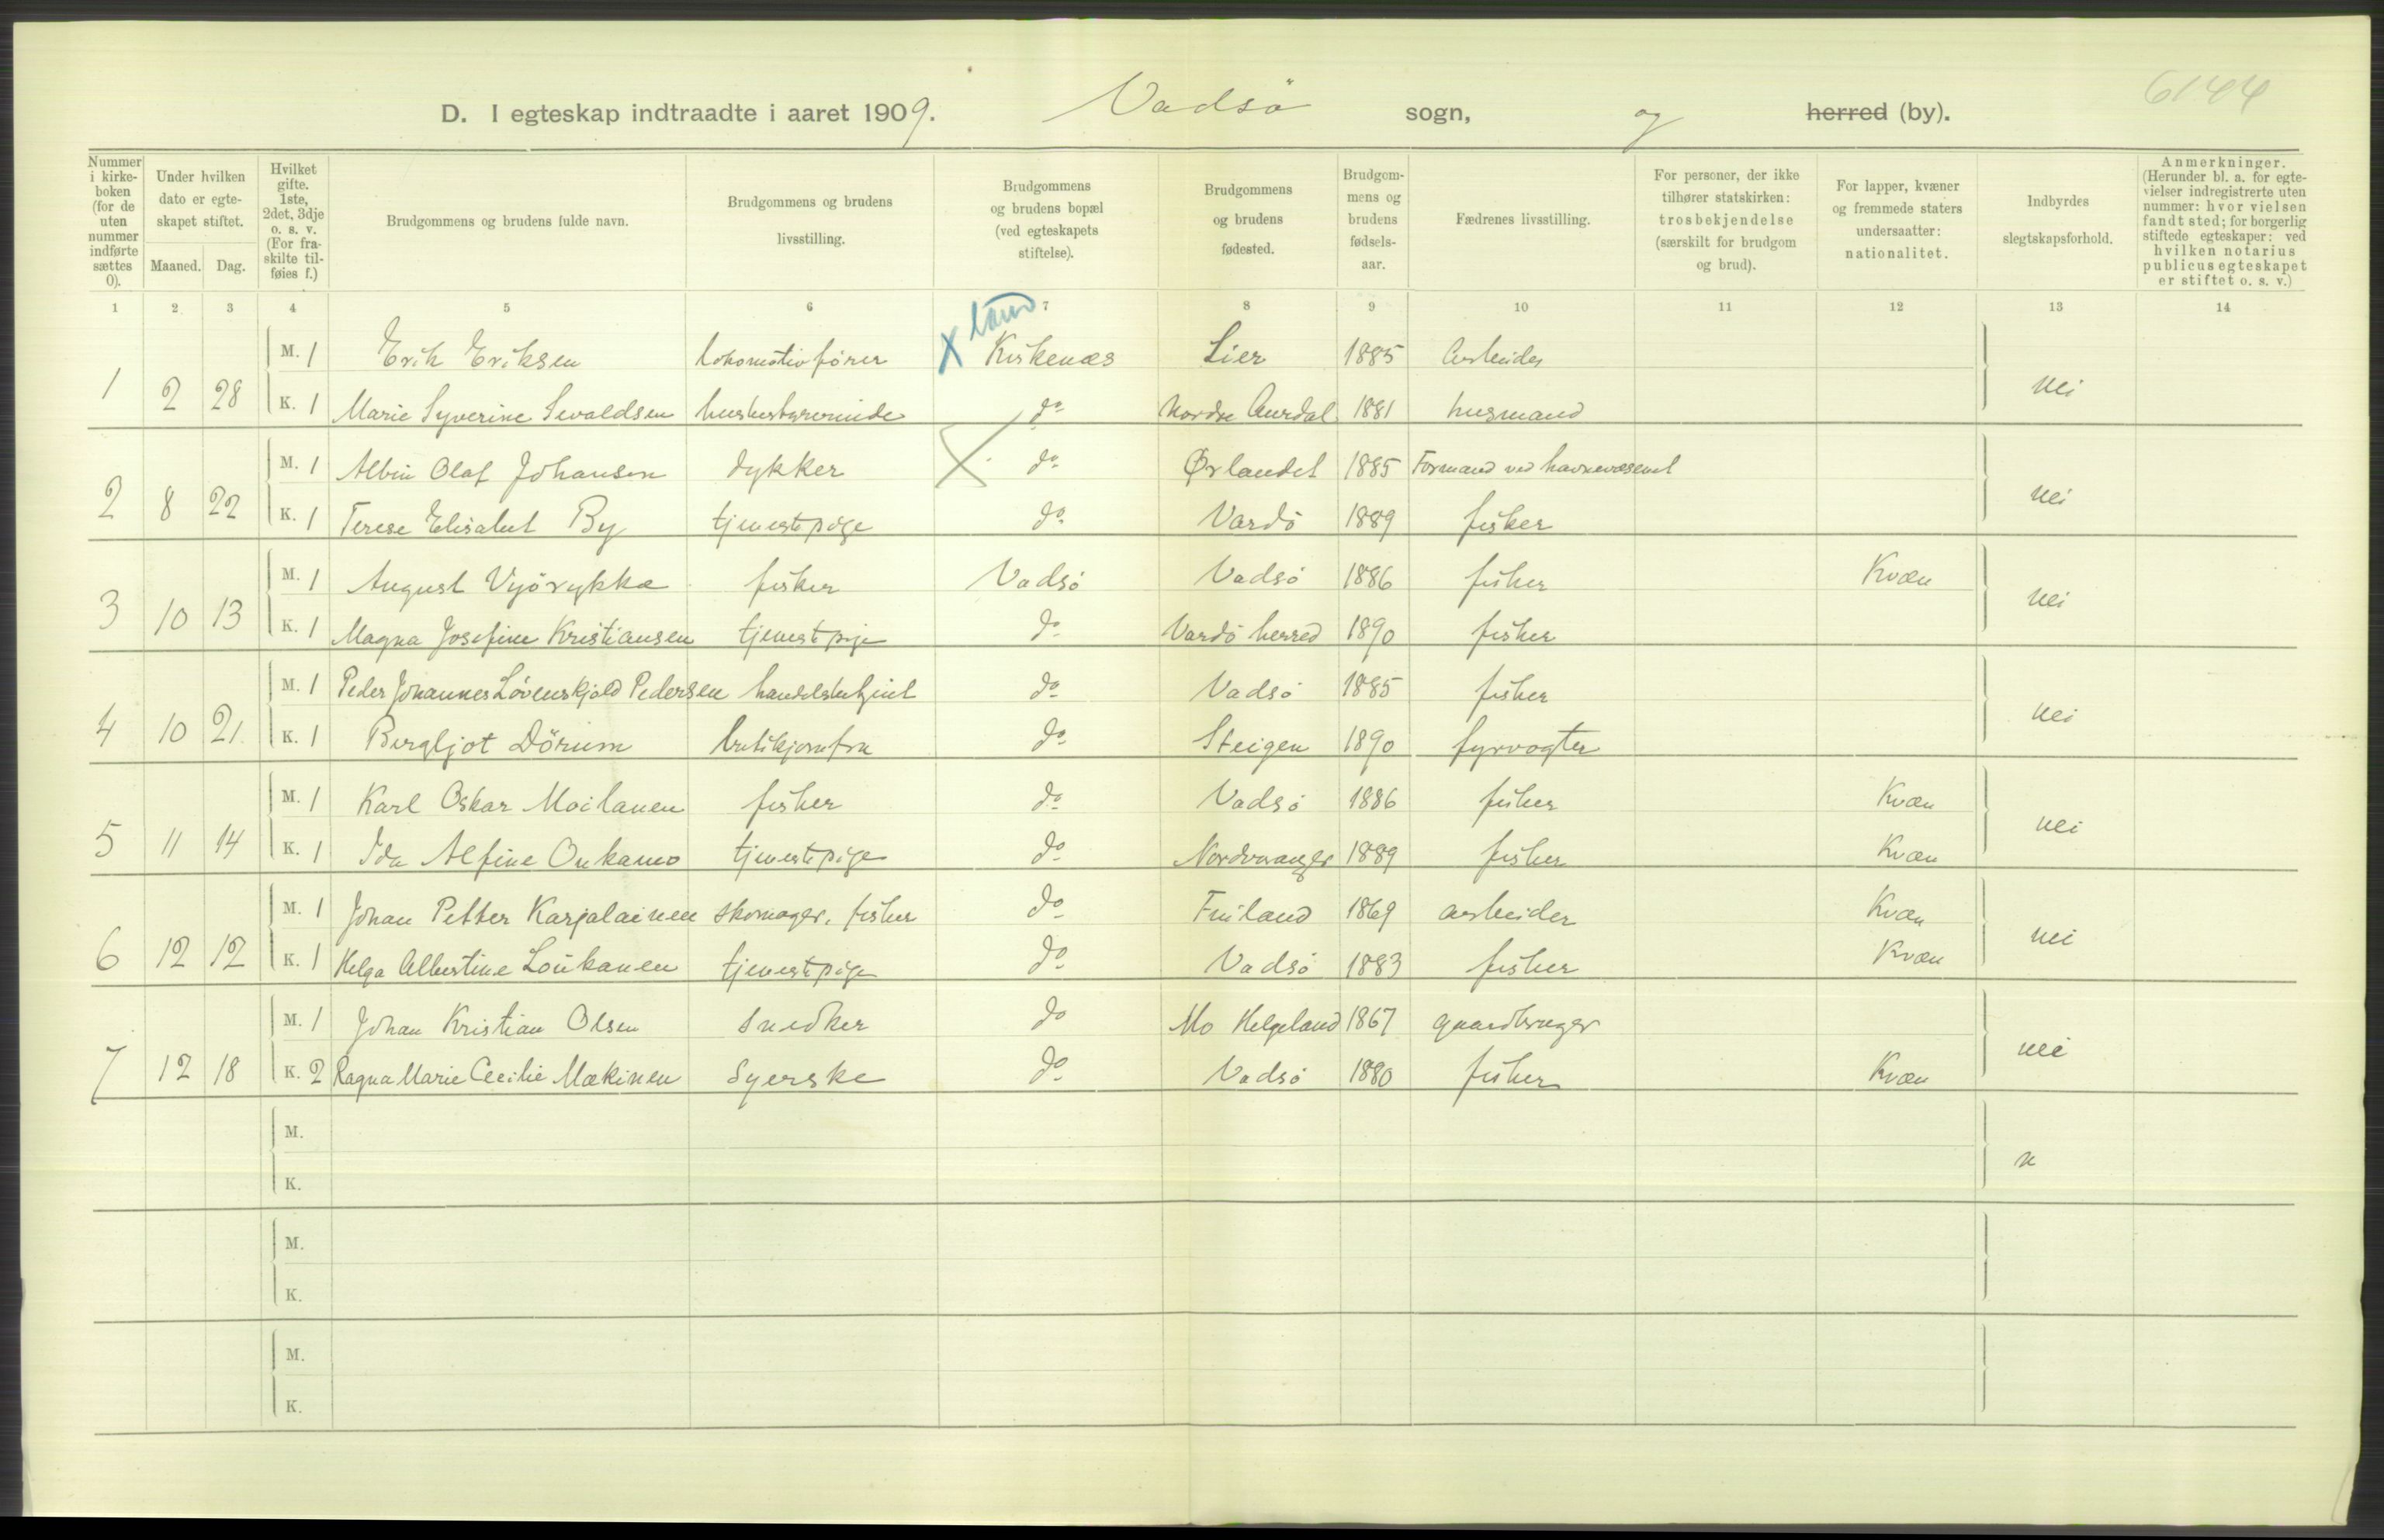 6144
D. I egteskap indtraadte i aaret 1909. Vadsö sogn, og herred (by).
Nummer i kirkeboken (for de uten nummer indførte sættes 0).
Under hvilken dato er egteskapet stiftet.
Maaned. Dag.
Hvilket gifte. 1ste, 2det, 3dje o. s. v. (For fraskilte tilføies f.)
Brudgommens og brudens fulde navn.
Brudgommens og brudens livsstilling.
Brudgommens og brudens bopæl (ved egteskapets stiftelse).
Brudgommens og brudens fødested.
Brudgommens og brudens fødselsaar.
Fædrenes livsstilling.
For personer, der ikke tilhører statskirken: trosbekjendelse (særskilt for brudgom og brud).
For lapper, kvæner og fremmede staters undersaatter: nationalitet.
Indbyrdes slegtskapsforhold.
Anmerkninger. (Herunder bl. a. for egtevielser indregistrerte uten nummer: hvor vielsen fandt sted; for borgerlig stiftede egteskaper: ved hvilken notarius publicus egteskapet er stiftet o. s. v.)
1 2 3 4 5 6 7 8 9 10 11 12 13 14
M. 1 Erik Eriksen lokomotivfører X Kirkenæs Lier 1885 Arbeider
1 2 28 K. 1 Marie Syverine Sevaldsen husbestyrerinde do Nordre Aurdal 1881 husmand nei
M. 1 Albin Olaf Johansen dykker X do Ørlandet 1885 Formand ved havnevæsenet
2 8 22 K. 1 Terese Elisabet By tjenestepige do Vardö 1889 fisker nei
M. 1 August Vyörykka fisker Vadsö Vadsö 1886 fisker Kvæn
3 10 13 K. 1 Magna Josefine Kristiansen tjenestepige do Vardö herred 1890 fisker nei
M. 1 Peder Johannes Lövenskjold Pedersen handelsbetjent do Vadsö 1885 fisker
4 10 21. K. 1 Bergljot Dörum butikjomfru do Steigen 1890 fyrvogter nei
M. 1 Karl Oskar Moilanen fisker do Vadsö 1886 fisker Kvæn
5 11 14 K. 1 Ida Alfine Onkamo tjenestepige do Nordvaranger 1889 fisker Kvæn nei
M. 1 Johan Petter Karjalainen skomager, fisker do Finland 1869 arbeider Kvæn
6 12 12 K. 1 Helga Albertine Loukanen tjenestepige do Vadsö 1883 fisker Kvæn nei
M. 1 Johan Kristian Olsen Snedker do Mo Helgeland 1867 gaardbruger
7 12 18 K. 2 Ragna Marie Cecilie Mækinen Syerske do Vadsö 1880 fisker Kvæn nei
M.
K. n
M.
K.
M.
K.